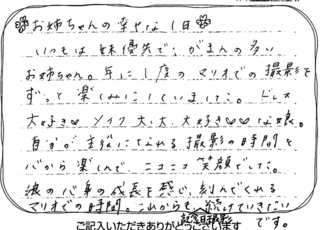 お姉ちゃんの幸せな1日
いつもは妹優先で、がまんの多い
お姉ちゃん。年に1度のマリオでの撮影を
ずっと楽しみにしていました。ドレス
大好き♥メイク大大大好き♥♥な娘。
自分が主役になれる撮影の時間を
心から楽しんでニコニコ笑顔でした。
娘の心身の成長を感じ、刻んでくれる
マリオでの時間。これからも続けていきたい
記念日撮影
です。
ご記入いただきありがとうございます